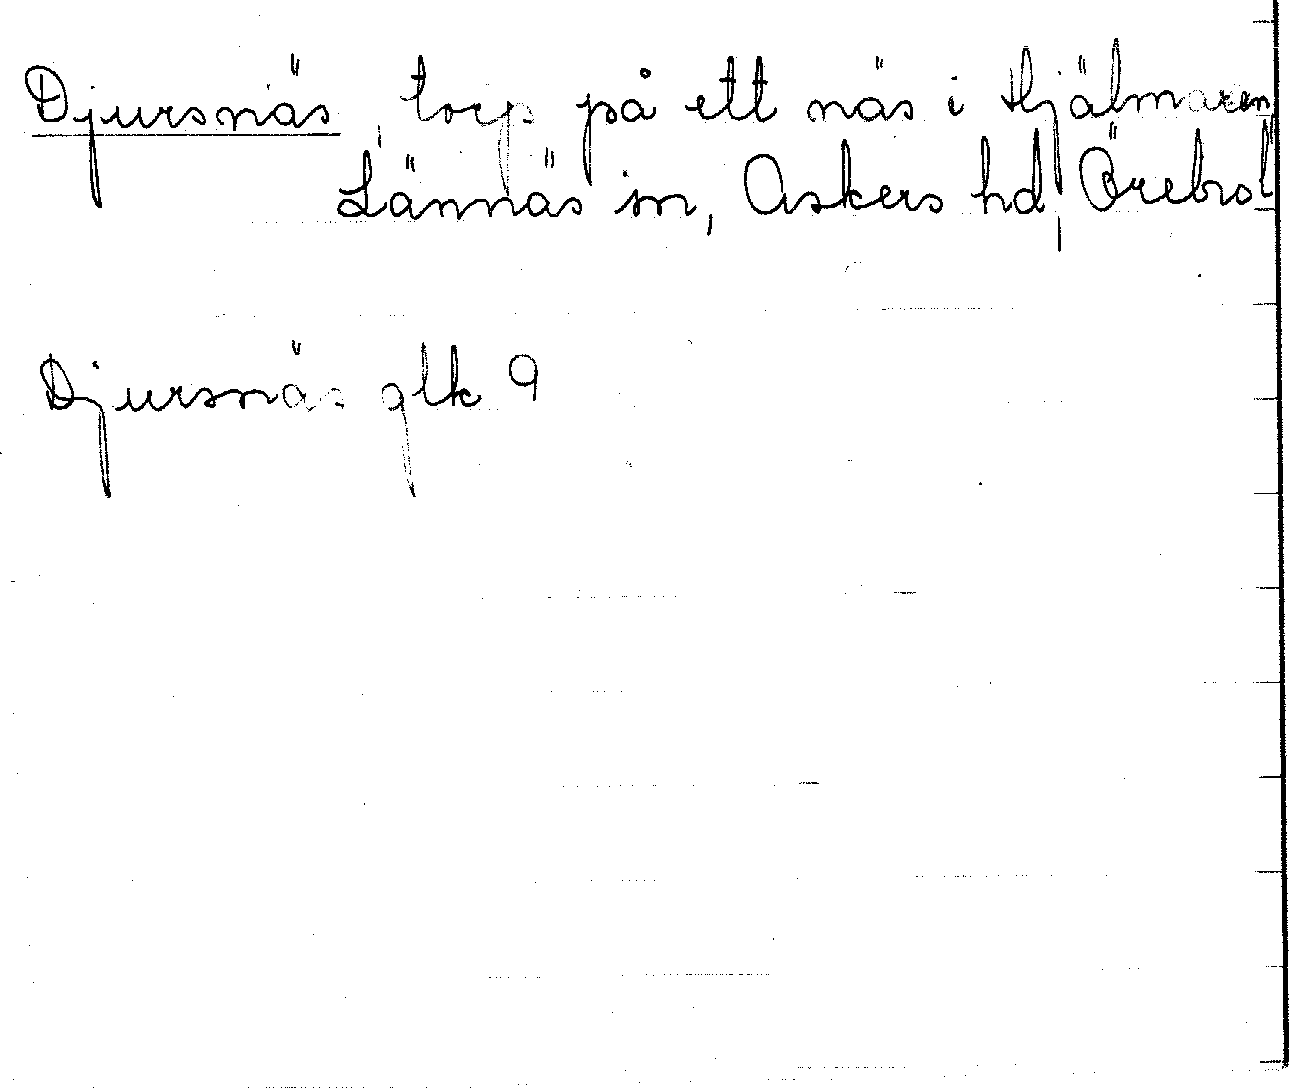 Djursnäs, torp på ett näs i Hjälmaren,
Lännäs sn, Askers hd, Örebro l
Djursnäs glk 9